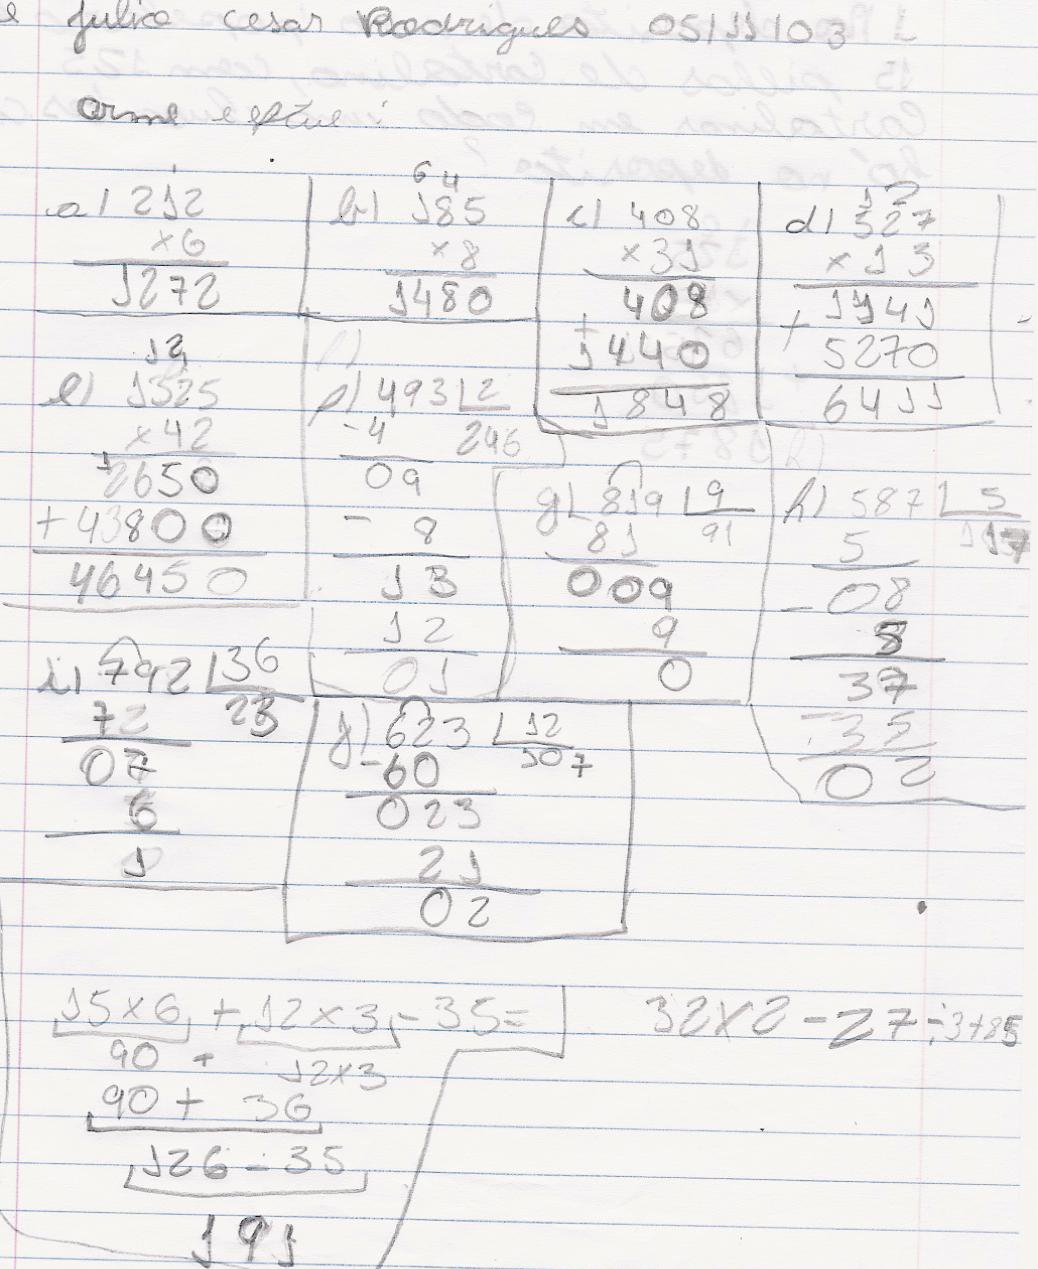 e julio cesar Rodrigues 05/11/03
arme e efetue:
a) 212
×6
1272
64
b) 185
×8
1480
c) 408
×31
408
+
1440
1848
12
d) 327
×13
1141
+
5270
6411
12
e) 1325
×42
2650
+43800
46450
f) 493 2
-4 246
09
- 8
13
12
01
g) 819 9
81 91
009
9
0
h) 587 5
5 117
-08
5
37
-35
02
i) 792 36
72 23
07
6
1
j) 623 12
-60 507
023
21
02
15×6 + 12×3 - 35=
90 + 12×3
90 + 36
126 - 35
191
32×2 - 27÷3+85